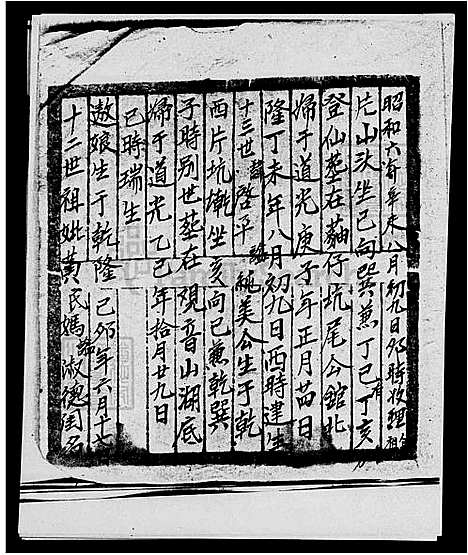 十二世祖妣黃氏媽謚淑德閨名
敖娘生于乾隆己夘年六月十七
巳時瑞生
婦于道光乙巳年拾月廿九日
子時別世葬在視音山湖底
西片坑乾坐亥向巳兼乾巽
十三世諱啓平謚純美公生于乾
隆丁未年八月初九日酉時建生
婦于道光庚子年正月廿四日
登仙葬在仔坑尾公館北
片山汰坐巳向巽兼丁巳丁亥
昭和六年辛未八月初九日夘時收理